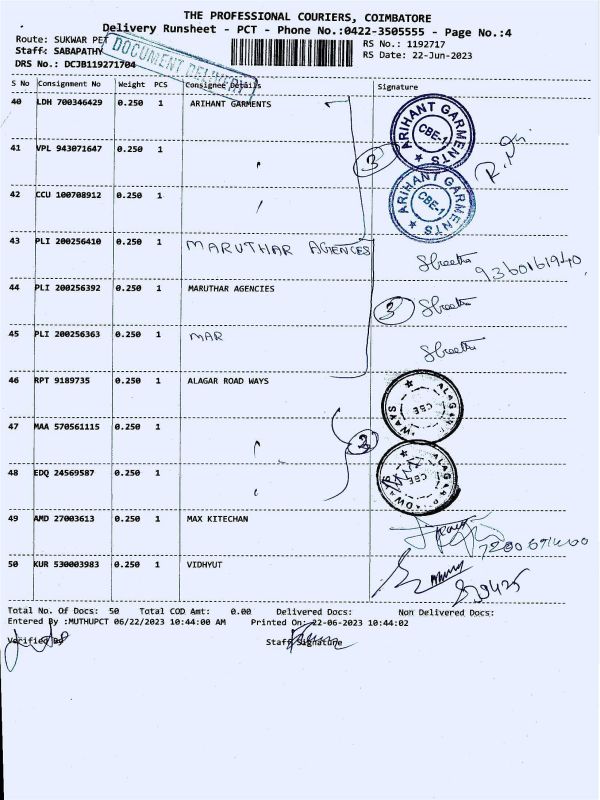 THE PROFESSIONAL COURIERS, COIMBATORE
Delivery Runsheet - PCT - Phone No.:0422-3505555 - Page No.:4
Route: SUKWAR PET
RS No.: 1192717
Staff: SABAPATHY
RS Date: 22-Jun-2023
DRS No.: DCJB119271704
DOCUMENT DELIVERY
S No Consignment No Weight PCS Consignee Details Signature
40 LDH 700346429 0.250 1 ARIHANT GARMENTS
ARIHANT GARMENTS CBE-1
41 VPL 943071647 0.250 1
3
42 CCU 100708912 0.250 1
ARIHANT GARMENTS CBE-1
43 PLI 200256410 0.250 1 MARUTHAR AGIENCES
9360161940
44 PLI 200256392 0.250 1 MARUTHAR AGENCIES
3
45 PLI 200256363 0.250 1 MAR
46 RPT 9189735 0.250 1 ALAGAR ROAD WAYS
CBE
47 MAA 570561115 0.250 1
2
48 EDQ 24569587 0.250 1
CBE
49 AMD 27003613 0.250 1 MAX KITECHAN
50 KUR 530003983 0.250 1 VIDHYUT
Total No. Of Docs: 50 Total COD Amt: 0.00 Delivered Docs: Non Delivered Docs:
Entered By :MUTHUPCT 06/22/2023 10:44:00 AM Printed On: 22-06-2023 10:44:02
Verified By Staff Signature